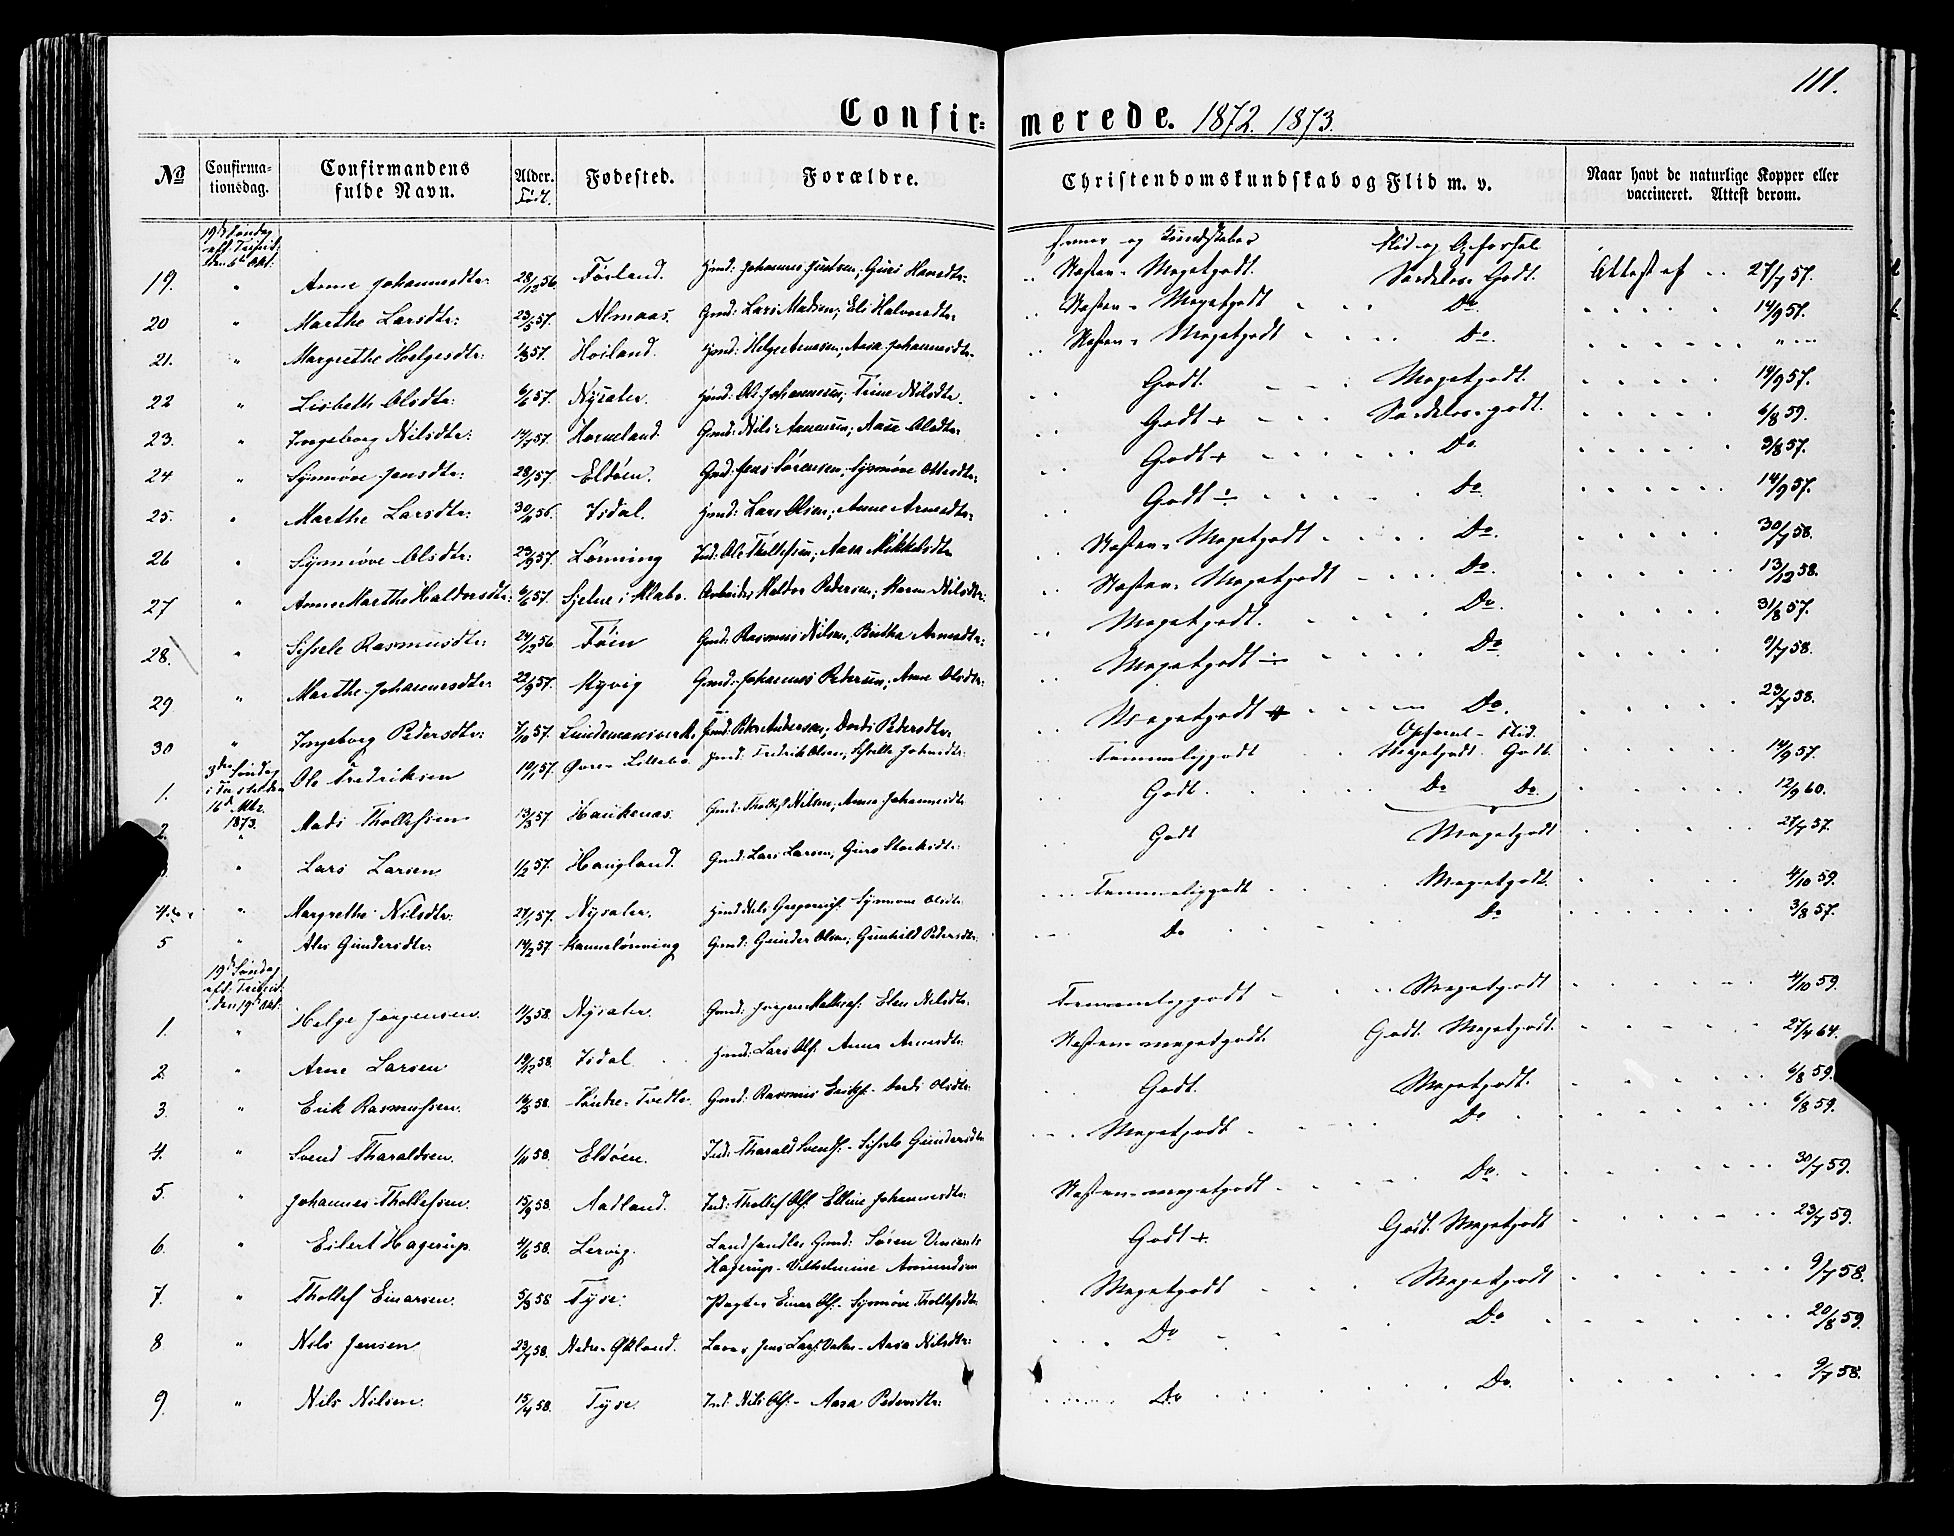 111.
Confir= merede. 1872. 1873.
No Confirma-tionsdag. Confirmandens fulde Navn. Alder. Født. Fødested. Forældre. Christendomskundskab og Flid m. v. Naar havt de naturlige Kopper eller vaccineret. Attest derom.
19de Søndag eft. Trinit: den 6te Okt: Evner og Kundskaber Flid og Opførsel
19. " Anne Johannesdtr: 28/12 56. Føiland. Gmd: Johannes Guro Næsten Megetgodt. Særdeles Godt. Attest af 27/7 57.
20 " Marthe Larsdtr: 23/5 57. Almaas. Gmd: Lars Madsen; Eli Halvorsdtr Næsten Megetgodt Do 14/9 57.
21. " Margrethe Helgesdtr: 57. Hoiland. Gmd: Helge Aasa Johannesdtr. Næsten Megetgodt Do. " "
22 " Lisbeth Olsdtr: 6/6 57. Nysæter. Gmd: Ole Johannesen; Trine Nilsdtr. Godt. Megetgodt. 14/9 57.
23. " Ingeborg Nilsdtr: 14/7 57. Horneland. Gmd: Nils Aase Olsdtr. Godt + Særdeles godt. 6/8 59.
24 " Synnøve Jensdtr: 28/1 57. Eldøen. Gmd: Jens Sørensen; Synnøve Ottesdtr Godt + Do 3/8 57.
25. " Marthe Larsdtr: 56. Isdal. Gmd: Lars Olsen; Anne Arnesdtr. Godt ÷ Do. 14/9 57.
26 " Synnøve Olsdtr: 23/9 57. Lønning Ind: Ole Thollefsen; Aasa Mikkelsdtr Næsten Megetgodt Do. 30/7 58.
27 " Anne Marthe Haldorsdtr: 6/6 57. Arbeider Haldor Pedersen; Karen Nilsdtr: Næsten Megetgodt Do. 13/12 58.
28. " Sissele Rasmusdtr: 56 Føien Gmd: Rasmus Nilsen; Bertha Arnesdtr: Megetgodt. Do. 31/8 57.
29 " Marthe Johannesdtr 22/9 57. Kyvig Gmd: Johannes Pedersen; Anne Olsdtr: Megetgodt ÷ Do 9/7 58.
30 " Ingeborg Pedersdtr: 7/10 57. Lundemansverk. Gmd: Peder Andersen; Dordi Pedersdtr. Megetgodt + Do. 23/7 58.
3die Søndag i Fasten den 16de Mtz. 1873. Opførsel Flid.
1. Ole Fredriksen 19/1 57. Øvre Gmd: Fredrik Olsen; Sissele Johnsdtr: Temmeliggodt Megetgodt Godt. 14/9 57.
2. " Mads Thollefsen 13/3 57. Haukenæs. Gmd: Thollef Nilsen; Anne Johannesdtr Godt. Do Do. 12/9 60.
" Lars Larsen 1/2 57. Haugland. Gmd: Lars Larsen; Guro Godt Megetgodt 27/7 57.
" Margrethe Nilsdtr. 57. Nysæter. Gmd Nils Synnøve Olsdtr Temmeliggodt Megetgodt. 4/10 59.
5 " Ales Gundersdtr. 14/2 57. Gmd: Gunder Olsen; Gunhild Pedersdtr Do Do 3/8 57.
19de Søndag eft: Trinit: den 19de Okt:
1. " Helge Jørgensen. 11/3 58. Nysæter. Gmd: Jørgen Elen Nilsdtr. Temmeliggodt Megetgodt 4/10 59.
2. " Arne Larsen 19/12 58. Isdal Gmd: Lars Ols. Anna Arnesdtr. Næsten megetgodt. Godt. Megetgodt. 27/7 64.
3. " Erik Rasmussen. 16/5 58. Søndre Tvedte. Gmd: Rasmus Eriks. Dordi Olsdtr. Godt. Megetgodt. 6/8 59.
4. " Svend Tharaldsen. 58. Eldøen. Ind: Tharald Svends. Sissele Gundersdtr Megetgodt Do 6/8 59.
5. " Johannes Thollefsen. 15/9 58. Aadland. Ind: Thollef Ols. Elline Johannesdtr. Næsten megetgodt Do. 30/7 59.
6. " Eilert Hagerup. 4/6 58. Lervig. Landhandler Gmd: Søren Vincents Hagerup. Vilhelmine Amundsen Godt + Godt. Megetgodt 23/7 59.
7. " Thollef Einarsen. 5/3 58 Tyse. Pagter Einar Ols. Synnøve Thollefsdtr. Megetgodt Megetgodt 9/7 58.
8 " Nils Jensen 23/7 58. Nedre Økland. Jens Aasa Nilsdtr: Do Do 20/8 59.
9. " Nils Nilsen. 15/4 58. Tyse. Ind: Nils Ols. Aasa Pedersdtr: Do Do. 9/7 58.